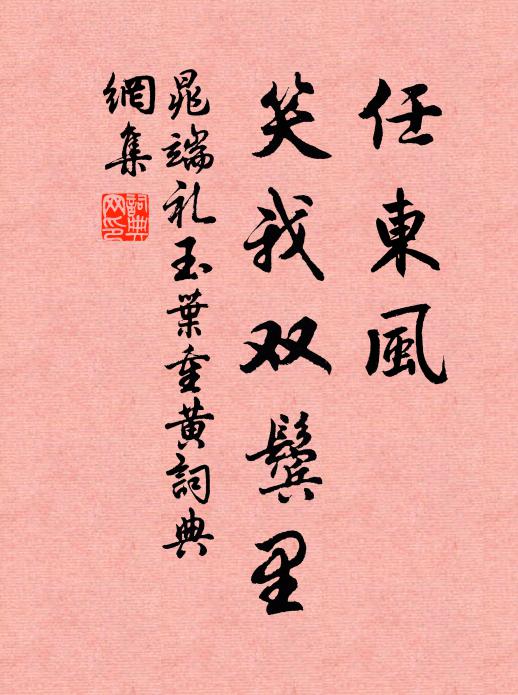 任東風
笑我双鬓里
晁端礼玉葉重黄詞典
網集
詞典网印